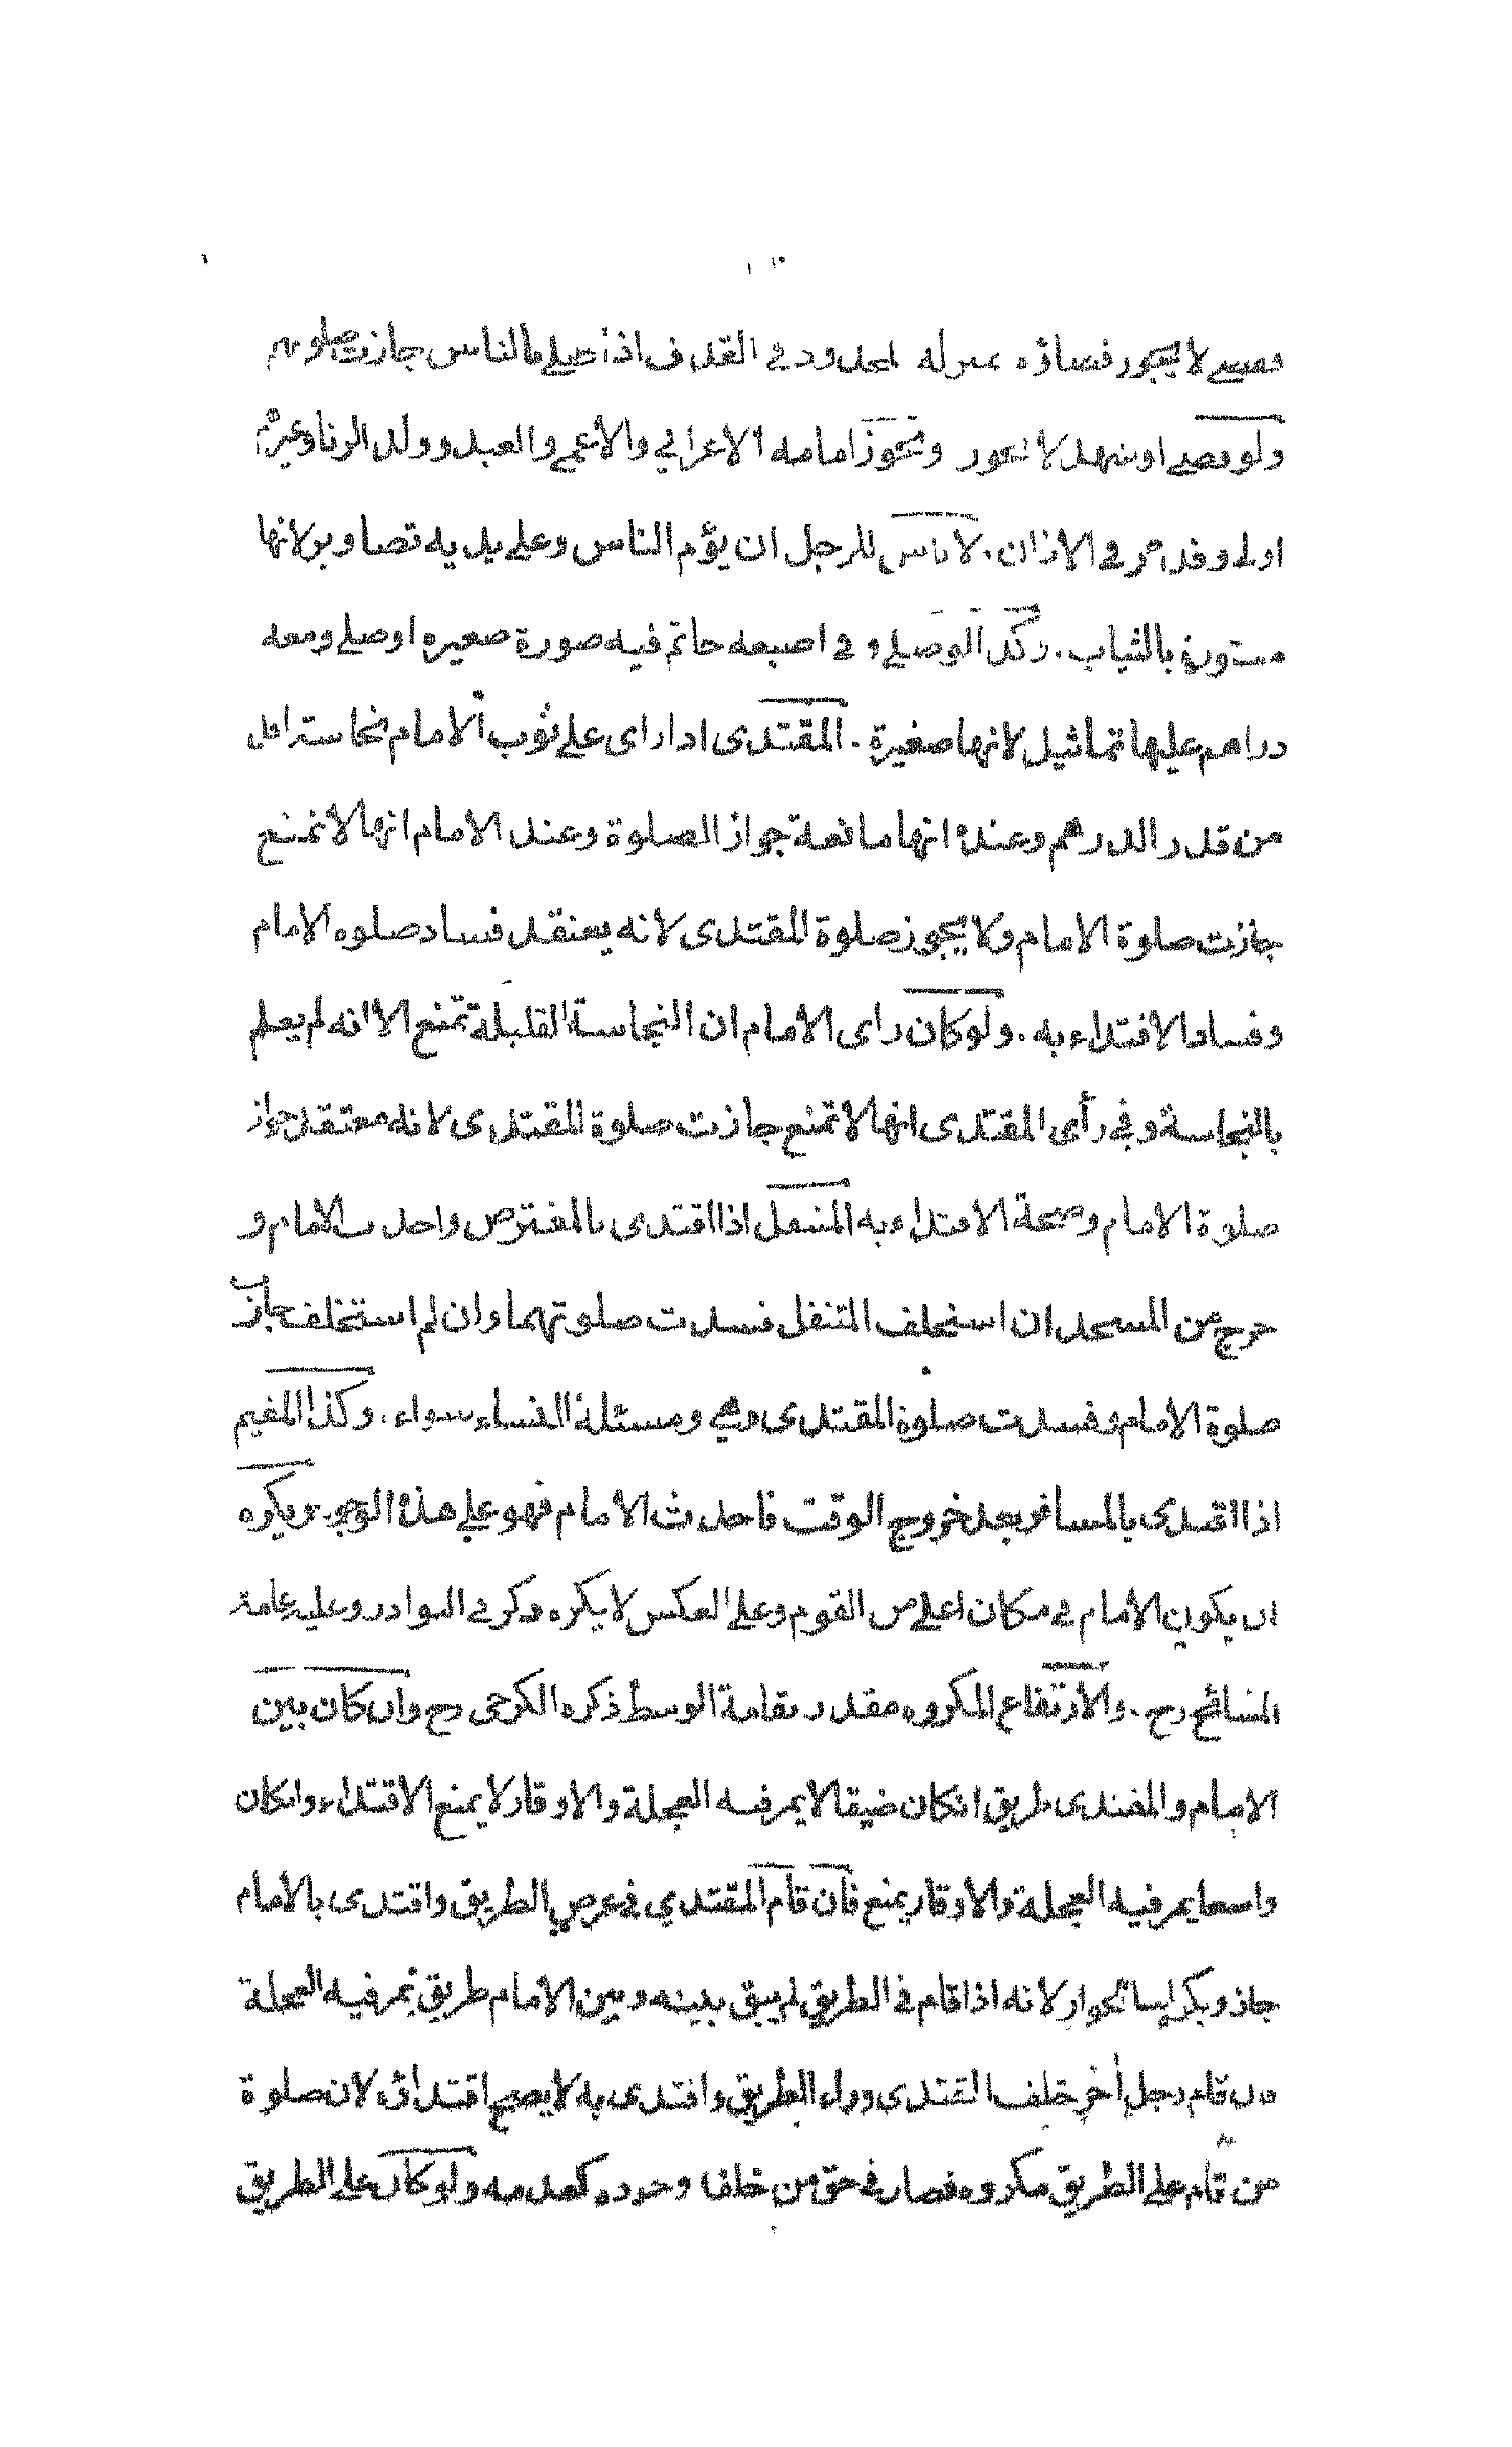 فقضى لا يجوز قضاؤه بمنزلة المحدود في القذف اذا صلى بالناس جازت صلوتهم
ولو قضى او شهد لا يجوز وتجوز امامه الاعرابي والاعمى والعبد وولد الزنا وغيرهم
اولى وقد مر في الاذان. لا باس للرجل ان يؤم الناس وعلى يديه تصاوير لانها
مستورة بالثياب. وكذا لو صلى و في اصبعه خاتم فيه صورة صغيره او صلى ومعه
دراهم عليها تماثيل لانها صغيرة. المقتدى اذا راى على ثوب الامام نجاسة اقل
من قدر الدرهم وعنده انها مانعة جواز الصلوة وعند الامام انها لا تمنع
جازت صلوة الامام ولا يجوز صلوة المقتدى لانه يعتقد فساد صلوه الامام
وفساد الاقتداء به. ولو كان راى الامام ان النجاسة القليلة تمنع الا انه لم يعلم
بالنجاسة وفي رأى المقتدى انها لا تمنع جازت صلوة المقتدى لانه معتقد جواز
صلوة الامام وصحة الاقتداء به المتنفل اذا اقتدى بالمفترض واحدث الامام و
خرج من المسجد ان استخلف المتنفل فسدت صلوتهما وان لم استخلف جازت
صلوة الامام وفسدت صلوة المقتدى وهي ومسئلة النساء سواء. وكذا المقيم
اذا اقتدى بالمسافر بعد خروج الوقت فاحدث الامام فهو على هذه الوجوه ويكره
ان يكون الامام في مكان اعلى من القوم وعلى العكس لا يكره وذكر في النوادر وعليه عامة
المشائخ رح. والارتفاع المكروه مقدر بقامة الوسط ذكره الكرخى رح وان كان بين
الامام والمقتدى طريق انكان ضيقا لا يمر فيه العجلة والاوقار لا يمنع الاقتداء وانكان
واسعا يمر فيه العجلة والاوقار يمنع فان قام المقتدي في عرض الطريق واقتدى بالامام
جاز ويكره اما الجواز لانه اذا قام في الطريق لم يبق بينه وبين الامام طريق يمر فيه العجلة
فان قام رجل أخر خلف المقتدى ووراء الطريق واقتدى به لا يصح اقتداؤه لان صلوة
من قام على الطريق مكروه فصار في حق من خلفا وجوده كعدمه ولو كان على الطريق